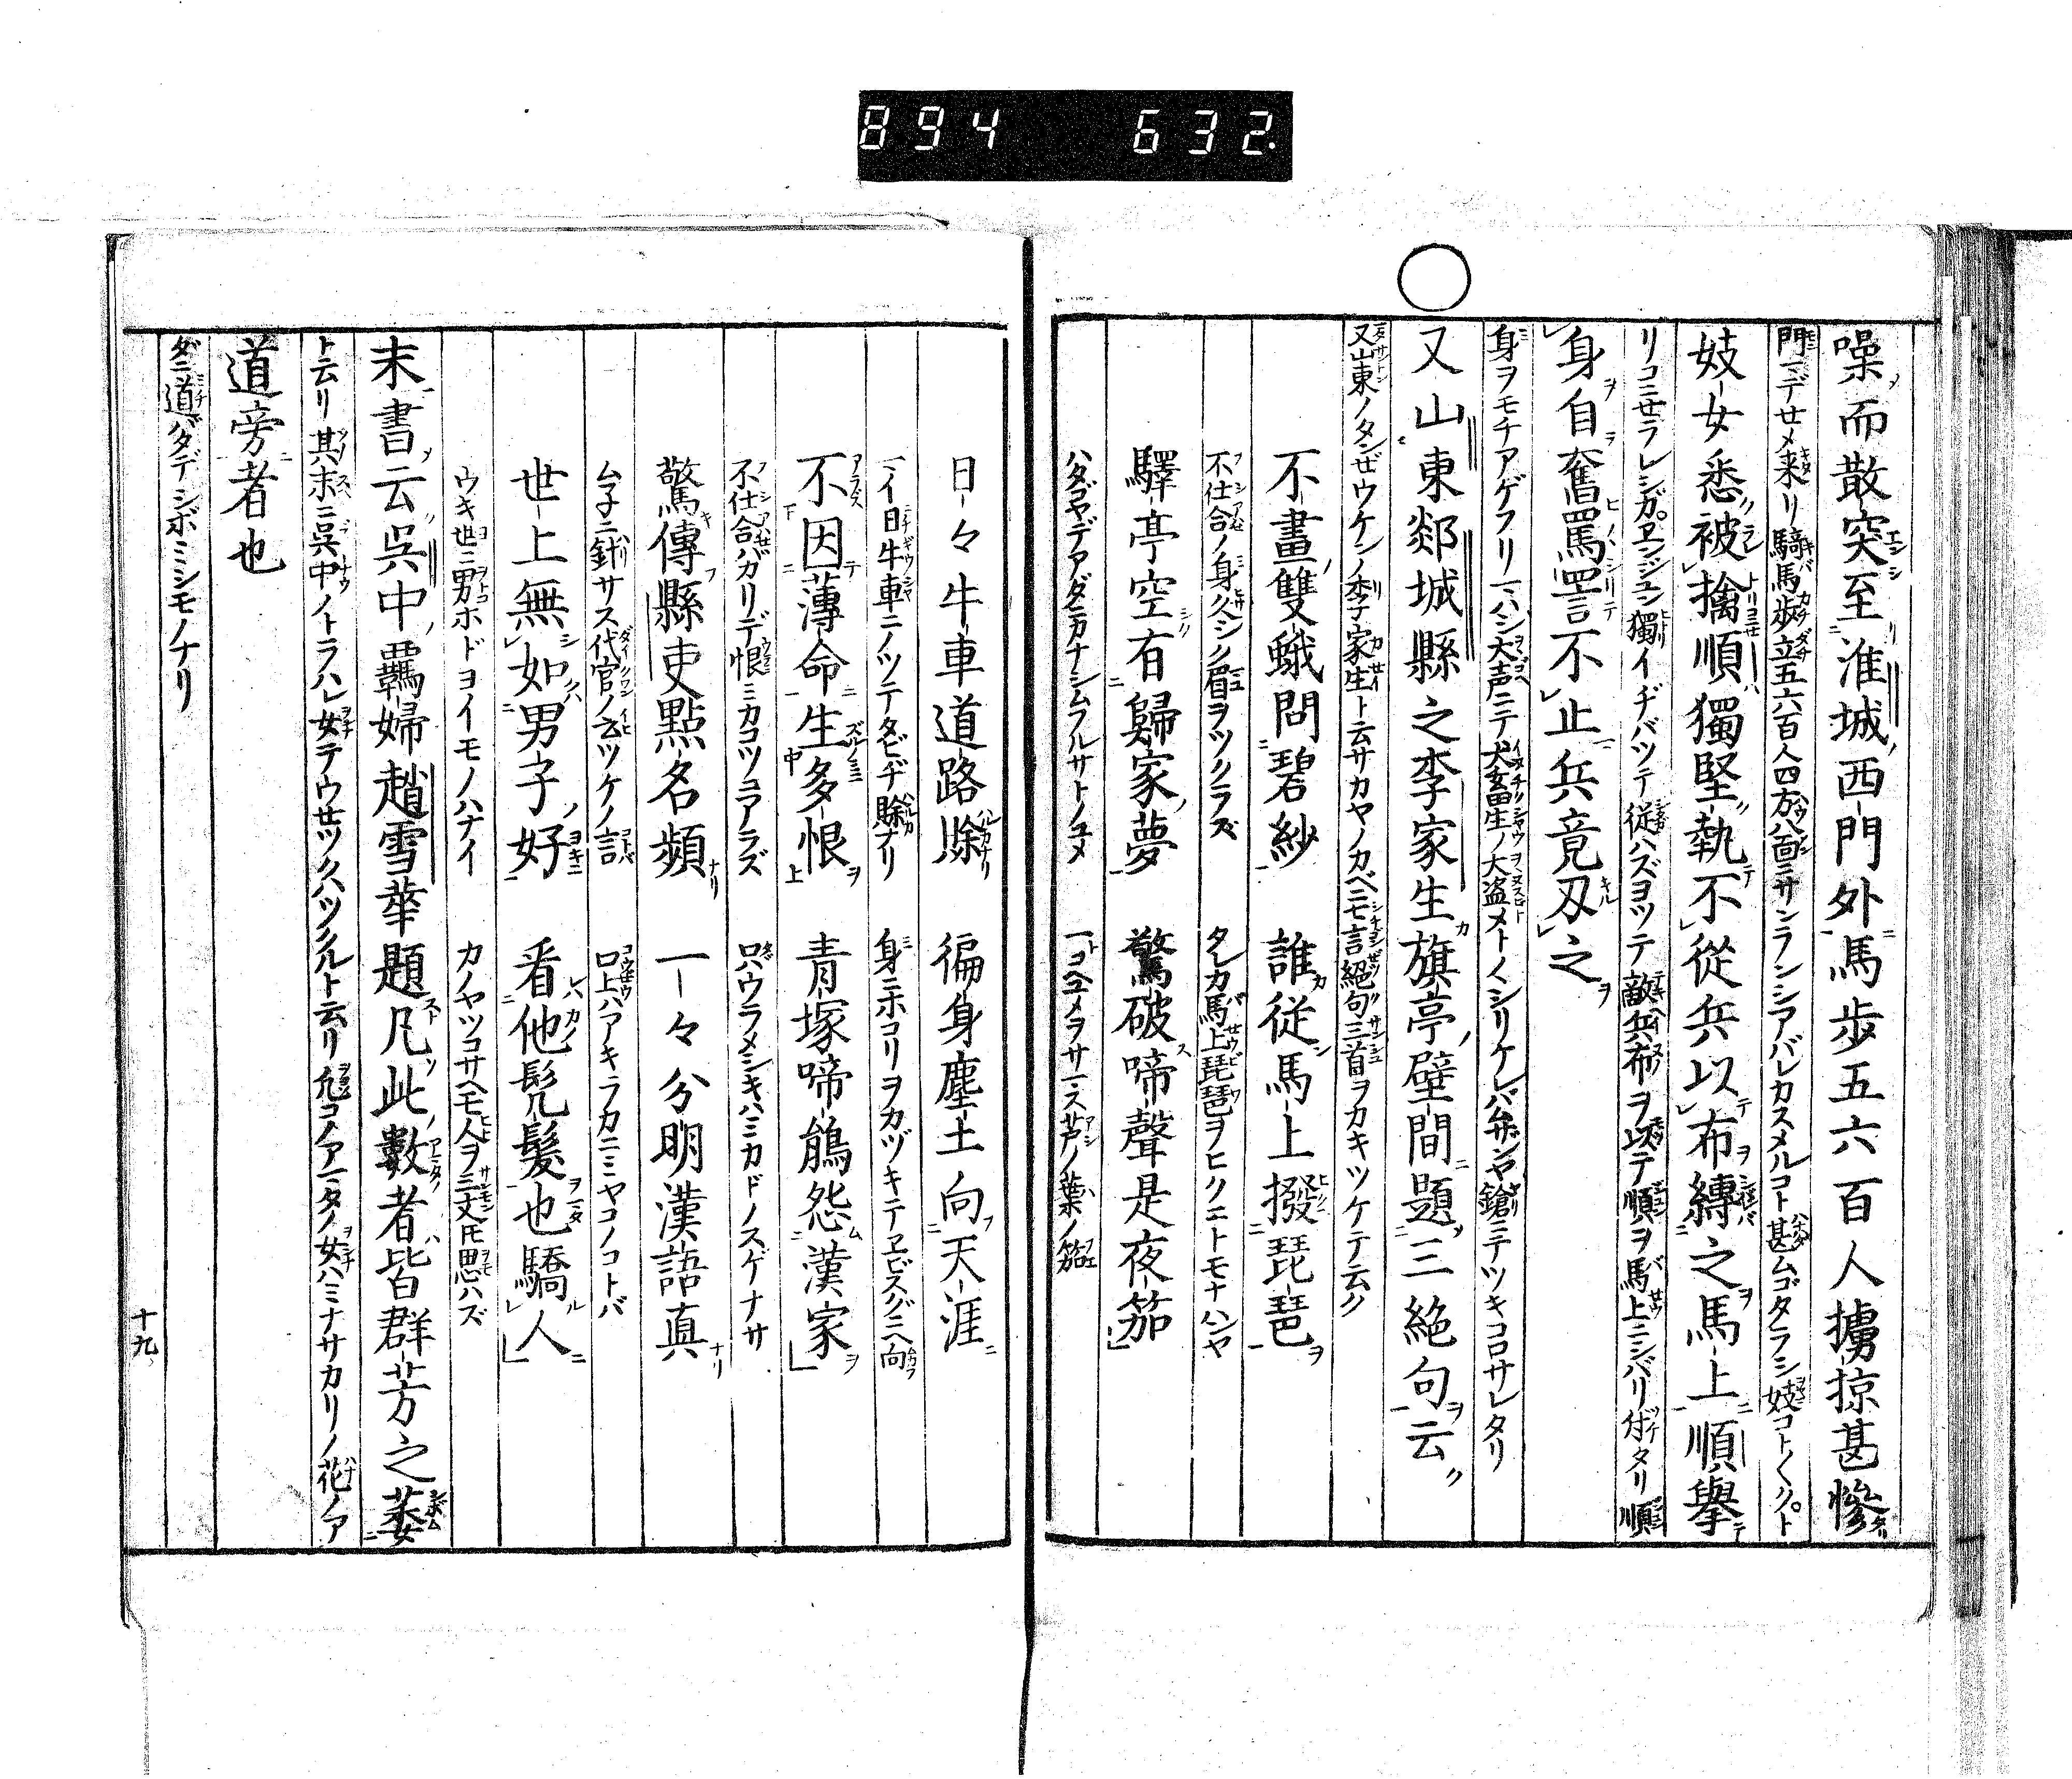 894 632.
噪而散突至淮城西門外馬歩五六百人擄掠甚慘
門マデセメ来リ騎馬歩立五六百人四方八面ニサンランシアバレカスメルコト甚ムゴタラシ妓コト〱ク。ト
妓女悉被擒順獨堅執不從兵以布縛之馬上順擧
リコニセラレシガ。ヱンジュン獨イヂバツテ従ハズヨツテ敵兵布ヲ以テ順ヲ馬上ニシバリ付タリ順
身自奮罵詈不止兵竟刃之
身ヲモチアゲフリマハシ大声ニテ犬畜生ノ大盗メトノヽシリケレバムザンヤ鎗ニテツキコロサレタリ
又山東郯城縣之李家生旗亭壁間題三絶句云
又山東ノタンゼウケンノ李家生ト云サカヤノカベニ七言絶句三首ヲカキツケテ云ク
不畫雙蛾問碧紗　誰從馬上撥琵琶
不仕合ノ身久シク眉ヲツクラズ　タレカ馬上琵琶ヲヒクニトモナハンヤ
驛亭空有歸家夢　驚破啼聲是夜笳
ハタゴヤデアダニカナシムフルサトノユメ　マコヘユメヲサマス芦ノ葉ノ笳
日々牛車道路賖　徧身塵土向天涯
マイ日牛車ニノツテタビヂ賖ナリ　身ニホコリヲカヅキテヱビスグニヘ向
不因薄命生多恨　青塚啼鵑怨漢家
不仕合バカリデ恨ミカコツコアラズ　只ウラメシキハミカドノスゲナサ
驚傳縣吏點名頻　一々分明漢語真
ムネニ針サス代官ノ云ツケノ言　口上ハアキラカニミヤコノコトバ
世上無如男子好　看他髡髮也驕人
ウキ世ニ男ホドヨイモノハナイ　カノヤツコサヘモ人ヲ三文トモ思ハズ
末書云呉中羈婦趙雪華題凡此數者皆群芳之萎
ト云リ其末ニ呉中ノトラハレ女テウセツクハツクルト云リ凡コノアマタノ女ハミナサカリノ花ノア
道旁者也
ダニ道バタデシボミシモノナリ
十九